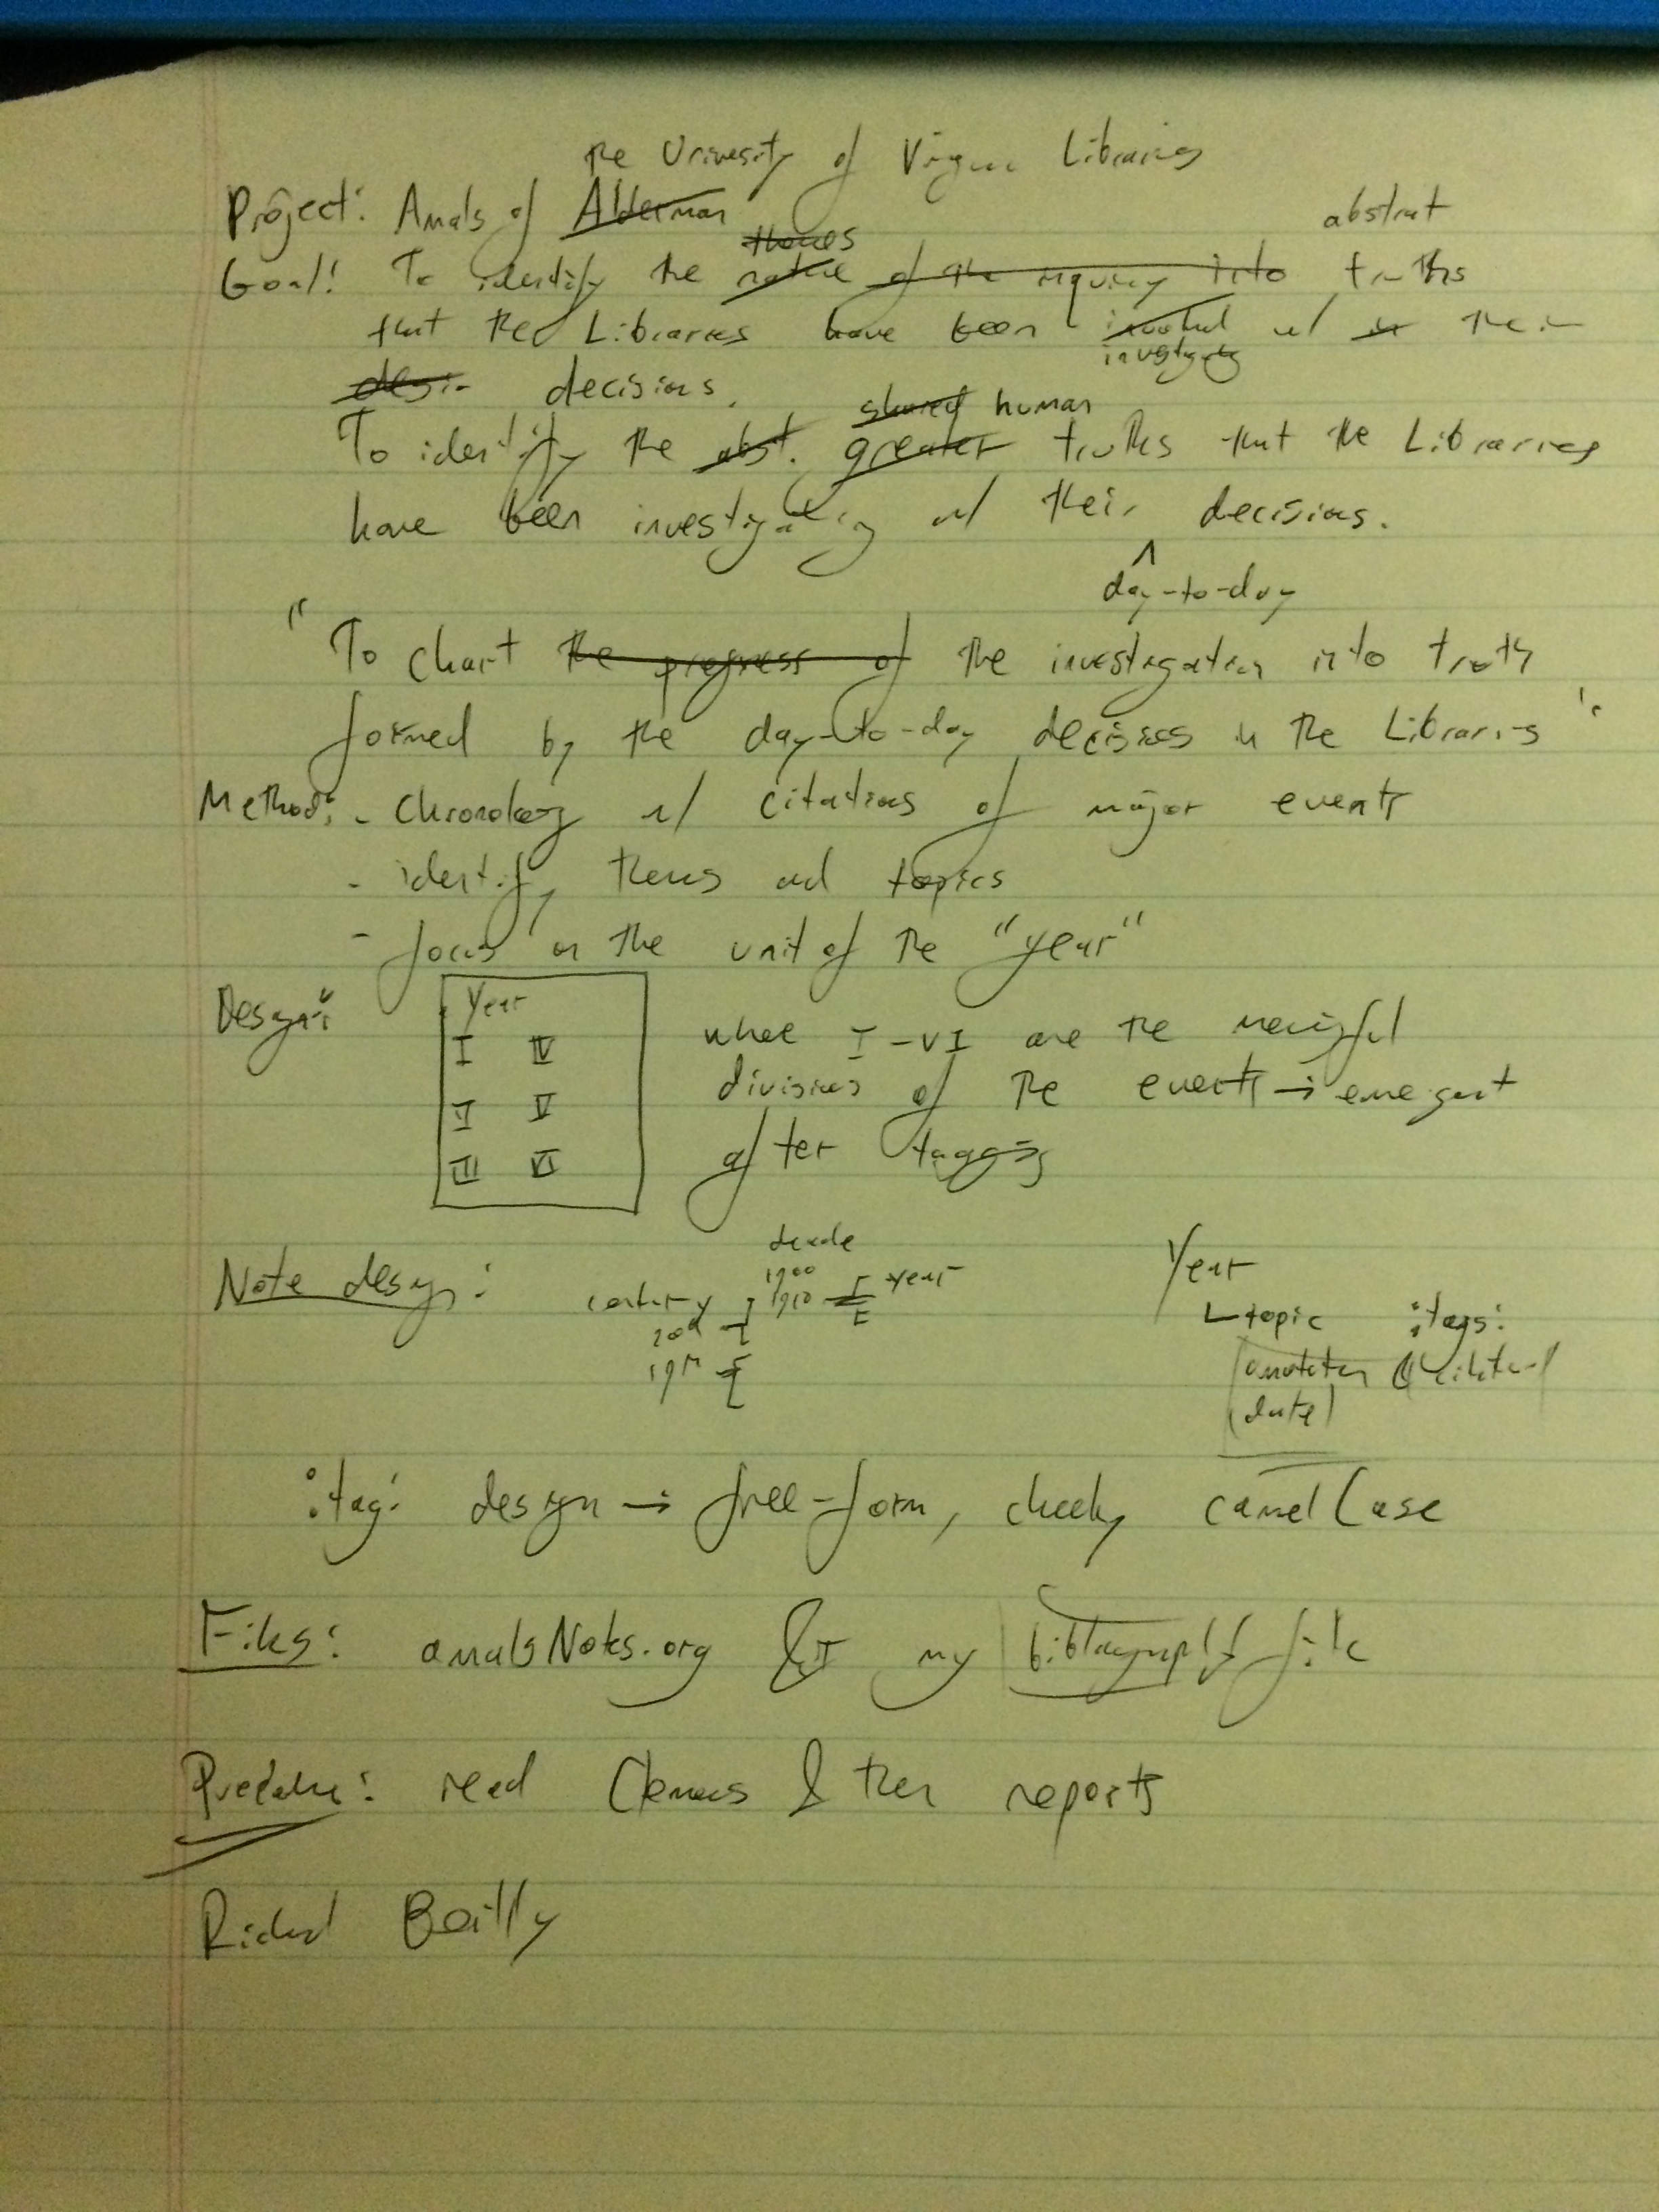 the University of Virginia Libraries
Project: Annals of Alderman
abstract
themes
Goal: To identify the nature of the inquiry into truths
that the Libraries have been involved w/ in their
investigating
design decisions.
shared human
To identify the abst. greater truths that the Libraries
have been investigating w/ their decisions.
^
day-to-day
"To chart the progress of the investigation into truth
formed by the day-to-day decisions in the Libraries"
Method: - Chronology w/ citations of major events
- identify themes and topics
- focus on the unit of the "year"
Design: Year
I IV
II V
III VI
where I-VI are the meaningful
divisions of the events → emergent
after tagging
Note design:
decade
century 1900
1910 year
20th
19th
Year
topic :tags:
annotation
(date)
:tag: design → free-form, cheeky camelCase
Files: annalsNotes.org & my bibliography file
Procedure: read Clemons & then reports
Richard Bailly